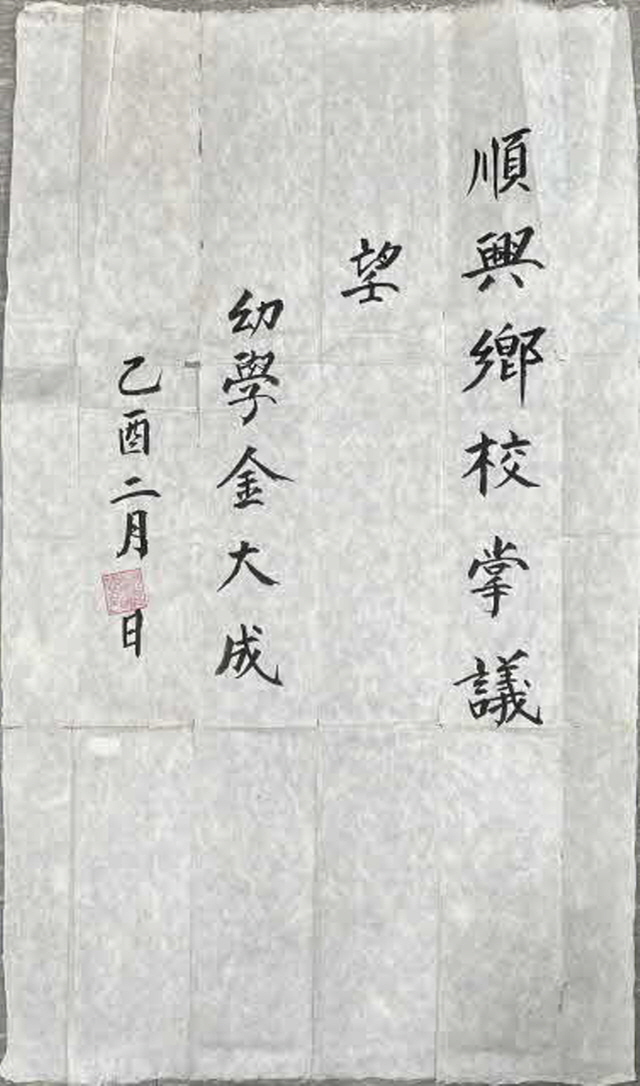 順興鄕校掌議
望
幼學金大成
乙酉二月日